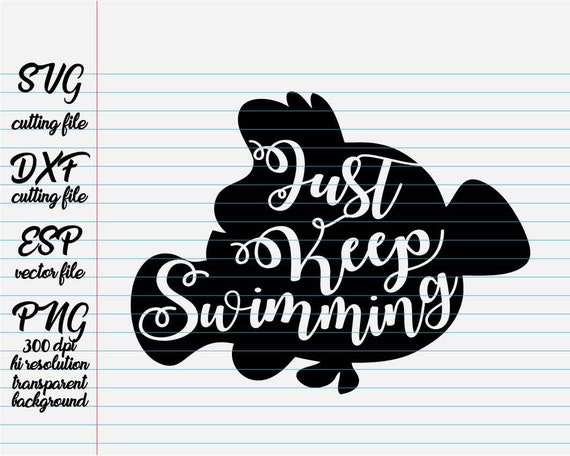 SVG
cutting file
DXF
cutting file
ESP
vector file
PNG
300 dpi
hi resolution
transparent
background
Just
Keep
Swimming